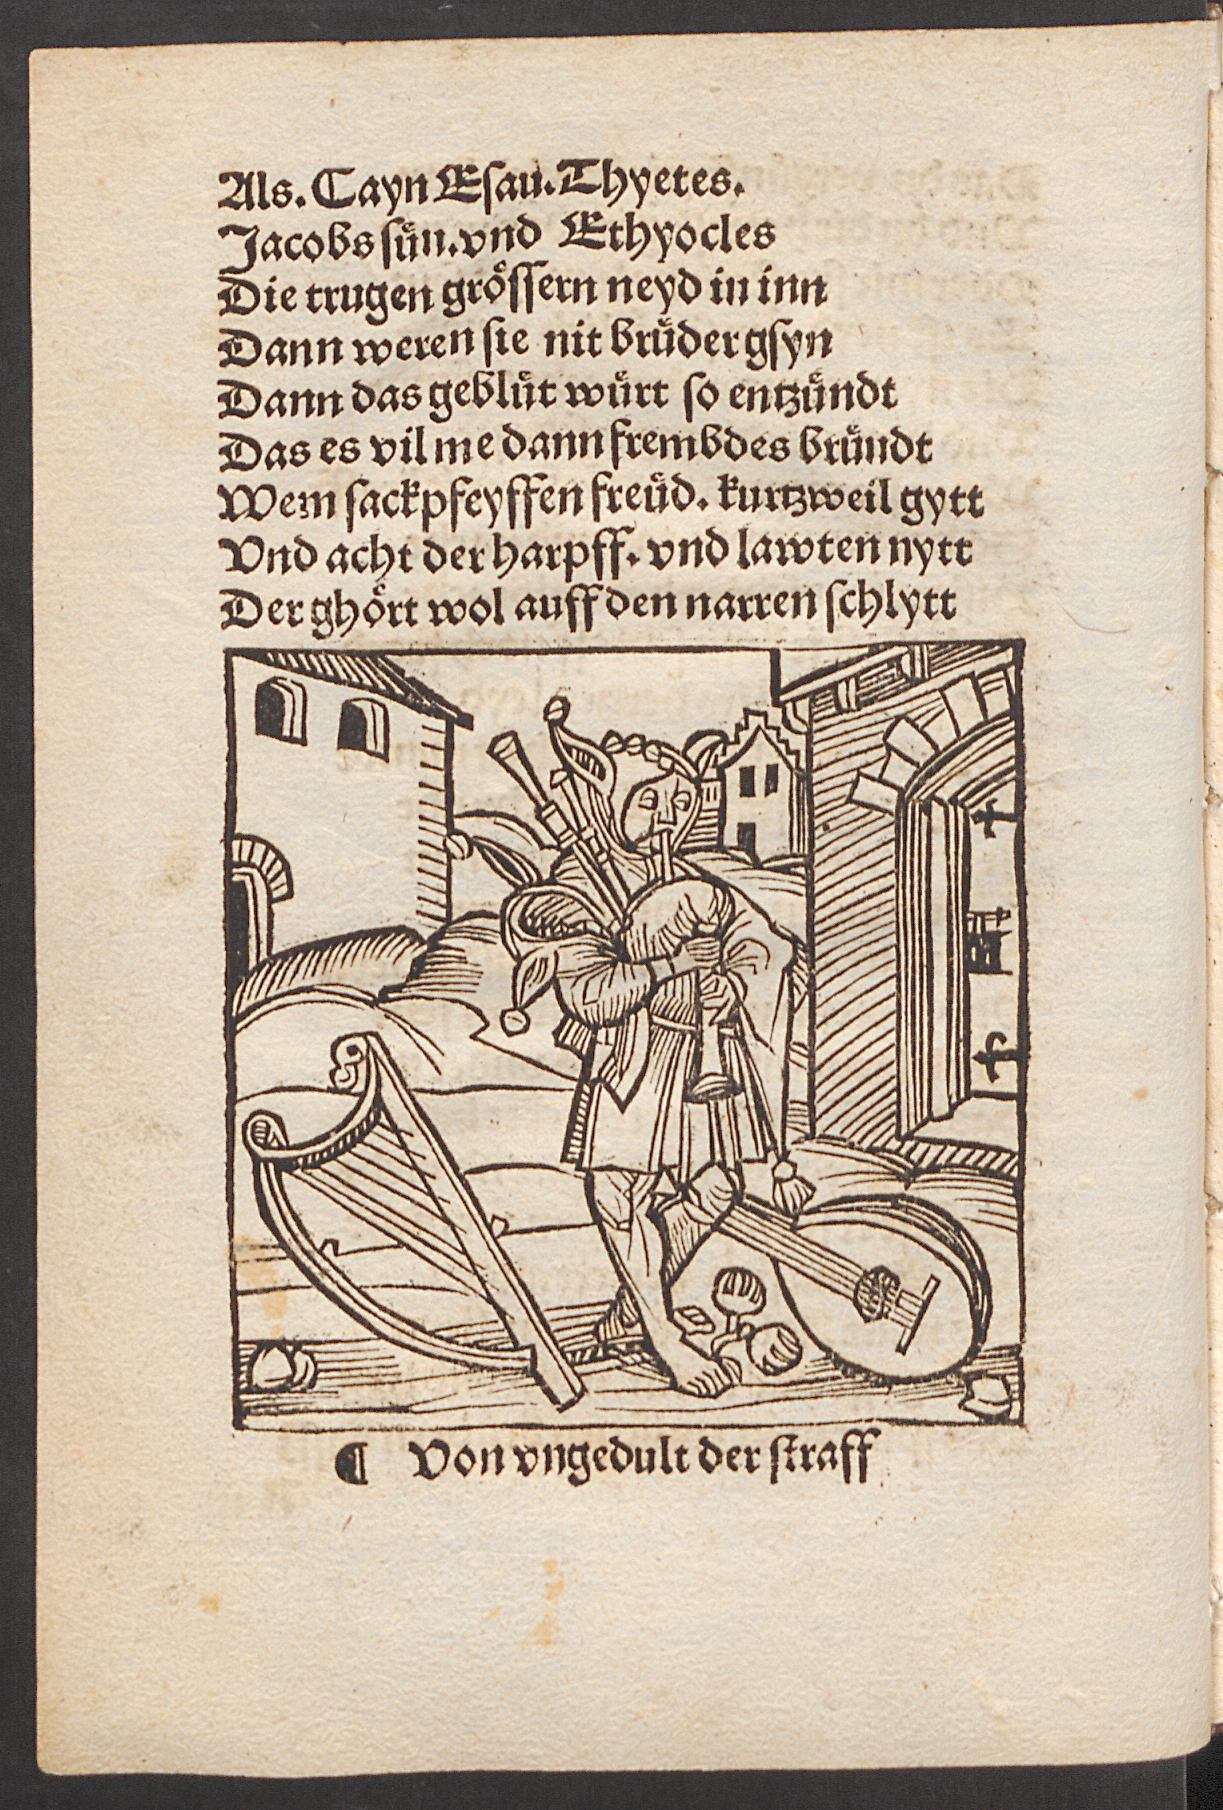 Als. Cayn Eſau. Thyetes.
Jacobs ſün. vnd Ethyocles
Die trugen gröſſern neyd in inn
Dann weren ſie nit bruͤder gſyn
Dann das gebluͤt wuͤrt ſo entzuͤndt
Das es vil me dann frembdes bruͤndt
Wem ſackpfeyffen freuͤd. kurtzweil gytt
Vnd acht der harpff. vnd lawten nytt
Der ghoͤrt wol auff den narren ſchlytt
¶ Von vngedult der ſtraff